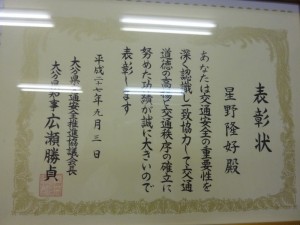 表彰状
星野隆好殿
あなたは交通安全の重要性を
深く認識し一致協力して交通
道徳の高揚と交通秩序の確立に
努めた功績が誠に大きいので
表彰します
平成二十七年九月三日
大分県交通安全推進協議会長
大分県知事広瀬勝貞